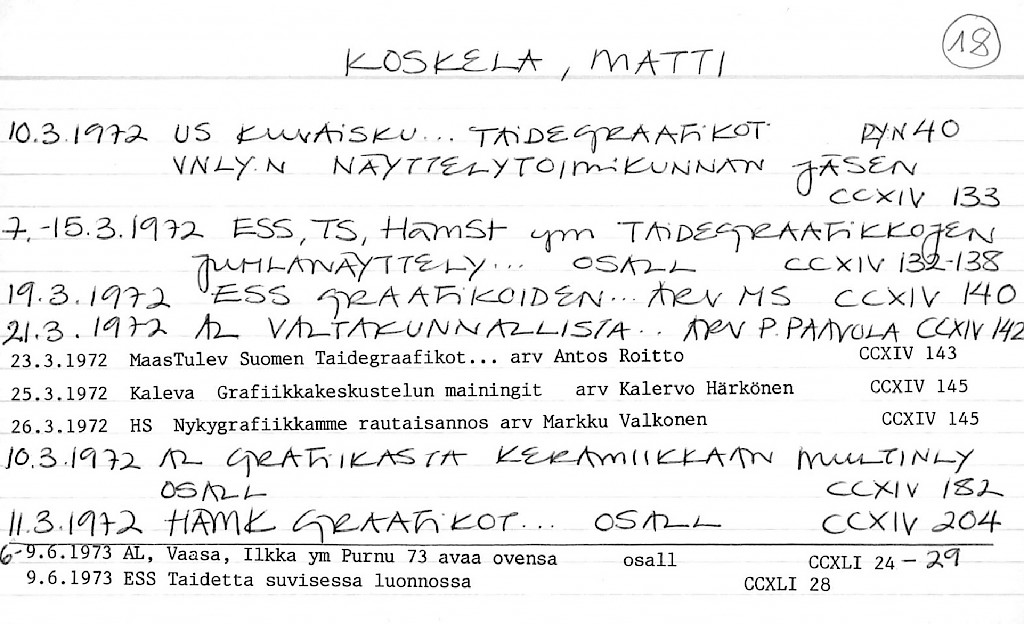 18
KOSKELA, MATTI
10.3.1972 US KUVAISKU... TAIDEGRAAFIKOT PYN 40
VNLY:N NÄYTTELYTOIMIKUNNAN JÄSEN
CCXIV 133
7.-15.3.1972 ESS, TS, HämSt ym TAIDEGRAAFIKKOJEN
JUHLANÄYTTELY... OSALL CCXIV 132-138
19.3.1972 ESS GRAAFIKOIDEN... ARV MS CCXIV 140
21.3.1972 AL VALTAKUNNALLISTA.. ARV P. PAAVOLA CCXIV 142
23.3.1972 MaasTulev Suomen Taidegraafikot... arv Antos Roitto CCXIV 143
25.3.1972 Kaleva Grafiikkakeskustelun mainingit arv Kalervo Härkönen CCXIV 145
26.3.1972 HS Nykygrafiikkamme rautaisannos arv Markku Valkonen CCXIV 145
10.3.1972 AL GRAFIIKASTA KERAMIIKKAAN MULTINLY
OSALL CCXIV 182
11.3.1972 HÄMK GRAAFIKOT... OSALL CCXIV 204
6-9.6.1973 AL, Vaasa, Ilkka ym Purnu 73 avaa ovensa osall CCXLI 24-29
9.6.1973 ESS Taidetta suvisessa luonnossa CCXLI 28